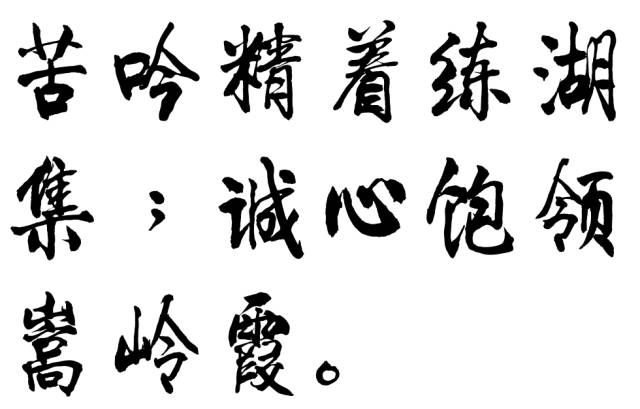 苦吟精着练湖
集；诚心饱领
嵩岭霞。